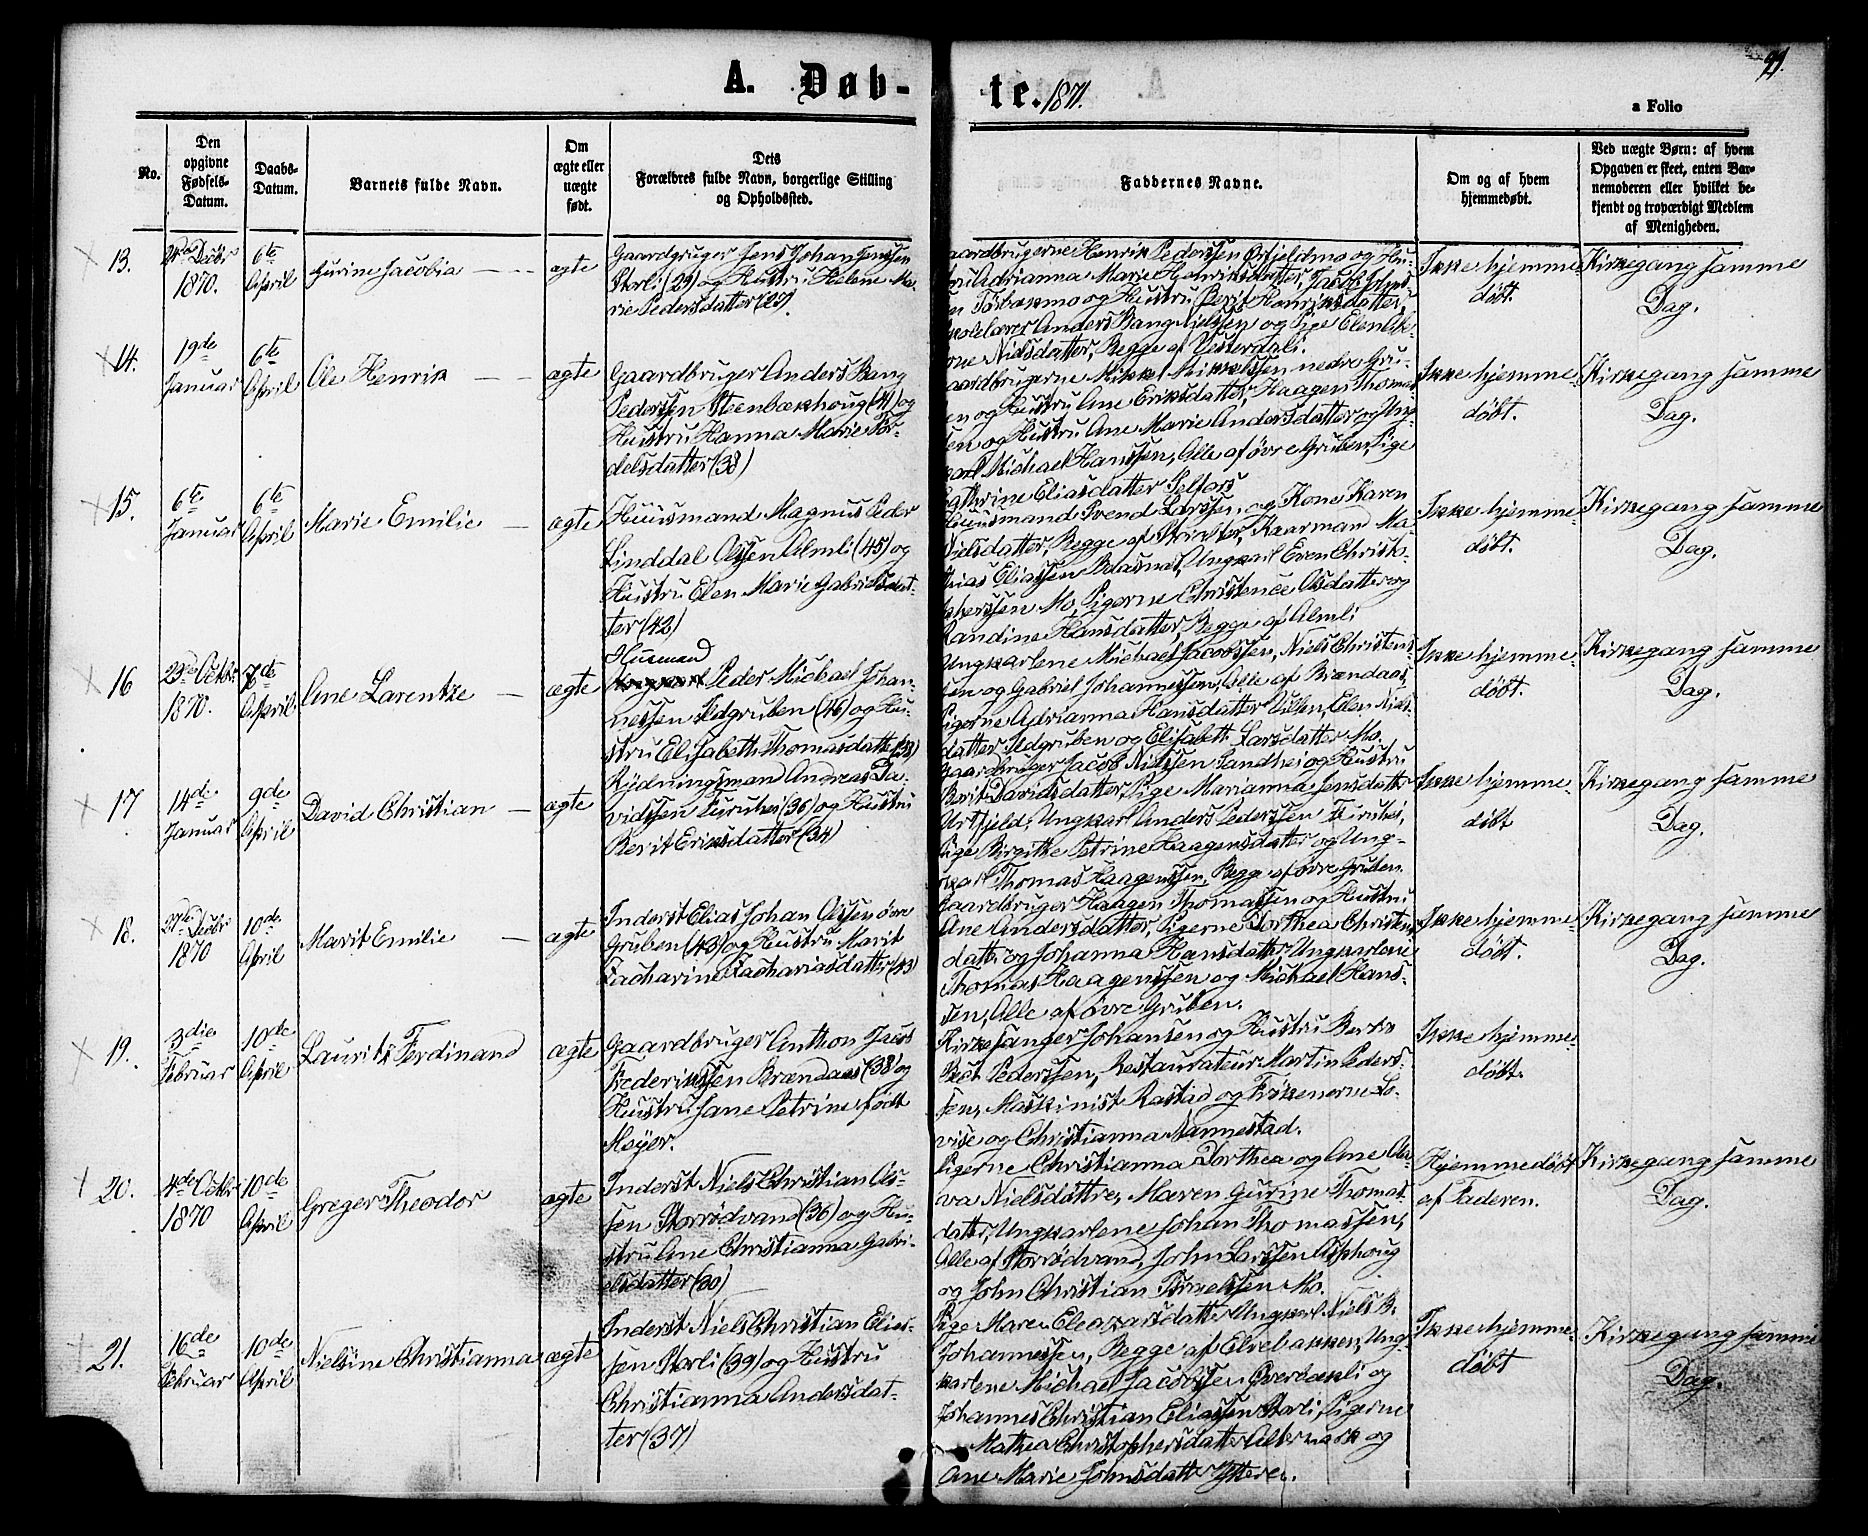 A. Døb-
te. 1871.
99.
a Folio
No.
Den opgivne Fødsels-Datum.
Daabs-Datum.
Barnets fulde Navn.
Om ægte eller uægte født.
Dets Forældres fulde Navn, borgerlige Stilling og Opholdssted.
Faddernes Navne.
Om og af hvem hjemmedøbt.
Ved uægte Børn: af hvem Opgaven er skeet, enten Barnemoderen eller hvilket bekjendt og troværdigt Medlem af Menigheden.
13.
1870.
6te April
Gurine Jacobia
ægte
Gaardgruger Jens Johan Jenssen
Storli (29) og Hustru Helene Ma-
rie Pedersdatter
Gaardbrugerne Henrik Pederssen og Hu-
stru Adrianna Marie Henriksdatter, Jacob
og Hustru Berit Henriksdatter,
Skolelærer Anders Bang Nielssen og Pige Elen
Nielsdatter, Begge af Vesterdali.
Ikke hjemme-
døbt.
Kirkegang samme
Dag.
14.
19de Januar
6te April
Ole Henrik
ægte
Gaardbruger Anders Bang
Pederssen Steenbækhoug (41) og
Hustru Hanna Marie Tor-
delsdatter (38)
Gaardbrugerne Mikkel Mikkelssen nedre Gru-
ben og Hustru Ane Eriksdatter, Haagen Thomas-
sen og Hustru Ane Marie Andersdatter og Ung-
karl Michael Hanssen, Alle af øvre Gruben, Pige
Cathrine Eliasdatter Selfors
Ikke hjemme-
døbt.
Kirkegang samme
Dag.
15.
6te Januar
6te April
Marie Emilie
ægte
Huusmand Magnus Peder
Linddal Olssen Almli (45) og
Hustru Elen Marie Gabrielsdat-
ter (42)
Huusmand Svend Larssen og Kone Karen
Nielsdatter, Begge af Kaarmand Ma-
thias Eliassen Baasmo, Ungkarl Even Christo-
pherssen Mo, Pigerne Christence Olsdatter og
Randine Hansdatter, Begge af Almli
Ikke hjemme-
døbt.
Kirkegang samme
Dag.
16
23de Octbr.
1870.
7de April
Ane Larentze
ægte
Husmand
Peder Michael Johan-
nessen Ildgruben (46) og Hu-
stru Elisabeth Thomasdatter
Ungkarlene Michael Jacobssen, Niels Christens-
sen og Gabriel Johannessen, Alle af Brændaas,
Pigerne Adrianna Hansdatter Elen Niels-
datter Ildgruben og Elisabeth Larsdatter Mo.
Ikke hjemme-
døbt.
Kirkegang samme
Dag.
17
14de Januar
9de April
David Christian
ægte
Rydningsmand Andreas Da-
vidssen Furuhei (36) og Hustru
Berit Eriksdatter (34)
Gaardbruger Jacob Nielssen Sandhei og Hustru
Berit Davidsdatter, Pige Marianna Jensdatter
Urtfjeld, Ungkarl Anders Pederssen Furuhei,
Pige Birgitte Petrine Haagensdatter og Ung-
karl Thomas Haagenssen, Begge af øvre Gruben.
Ikke hjemme-
døbt
Kirkegang samme
Dag.
18.
27de Decbr
1870
10de April
Marit Emilie
ægte
Inderst Elias Johan Olssen øvre
Gruben (43) og Hustru Marit
Zacharine Zachariasdatter (43)
Gaardbruger Haagen Thomassen og Hustru
Ane Andersdatter, Pigerne Dorthea Christens-
datter og Johanna Hansdatter, Ungkarlene
Thomas Haagenssen og Michael Hans-
sen, Alle af øvre Gruben.
Ikke hjemme-
døbt.
Kirkegang samme
Dag.
19.
3die Februar
10de April
Laurits Ferdinand
ægte
Gaardbruger Anthon Jacob
Frederikssen Brændaas (38) og
Hustru Jane Petrine født
Meyer.
Kirkesanger Johansen og Hustru
Pederssen, Restaurateur Martin Peders-
sen, Maskinist Rastad og Frøkenerne Lo-
vise og Christianna Nannestad.
Ikke hjemme-
døbt.
20.
4de Octbr
1870
10de April
Greger Theodor
ægte
Inderst Niels Christian Ols-
sen Storrødvand (36) og Hu-
stru Ane Christianna Gabri-
elsdatter (30)
Pigerne Christianna Dorthea og Ane
Nielsdøttre, Maren Gurine Thomas-
datter, Ungkarlene Johan Thomassen,
Alle af Storrødvand, John Larssen Asphoug
og John Christian Mo.
Hjemmedøbt
af Faderen.
Kirkegang samme
Dag.
21.
16de Februar
10de April
Nielsine Christianna
ægte
Inderst Niels Christian Elias-
sen Storli (39) og Hustru
Christianna Andersdat-
ter (37)
Pige Maren Eleazarsdatter Ungkarl Niels
Johannessen, Begge af Elvebakken, Ung-
karlene Michael Jacobssen og
Johannes Christian Eliassen Storli, Pigerne
Mathea Christophersdatter og
Ane Marie Johnsdatter Ytteren.
Ikke hjemme-
døbt
Kirkegang samme
Dag.